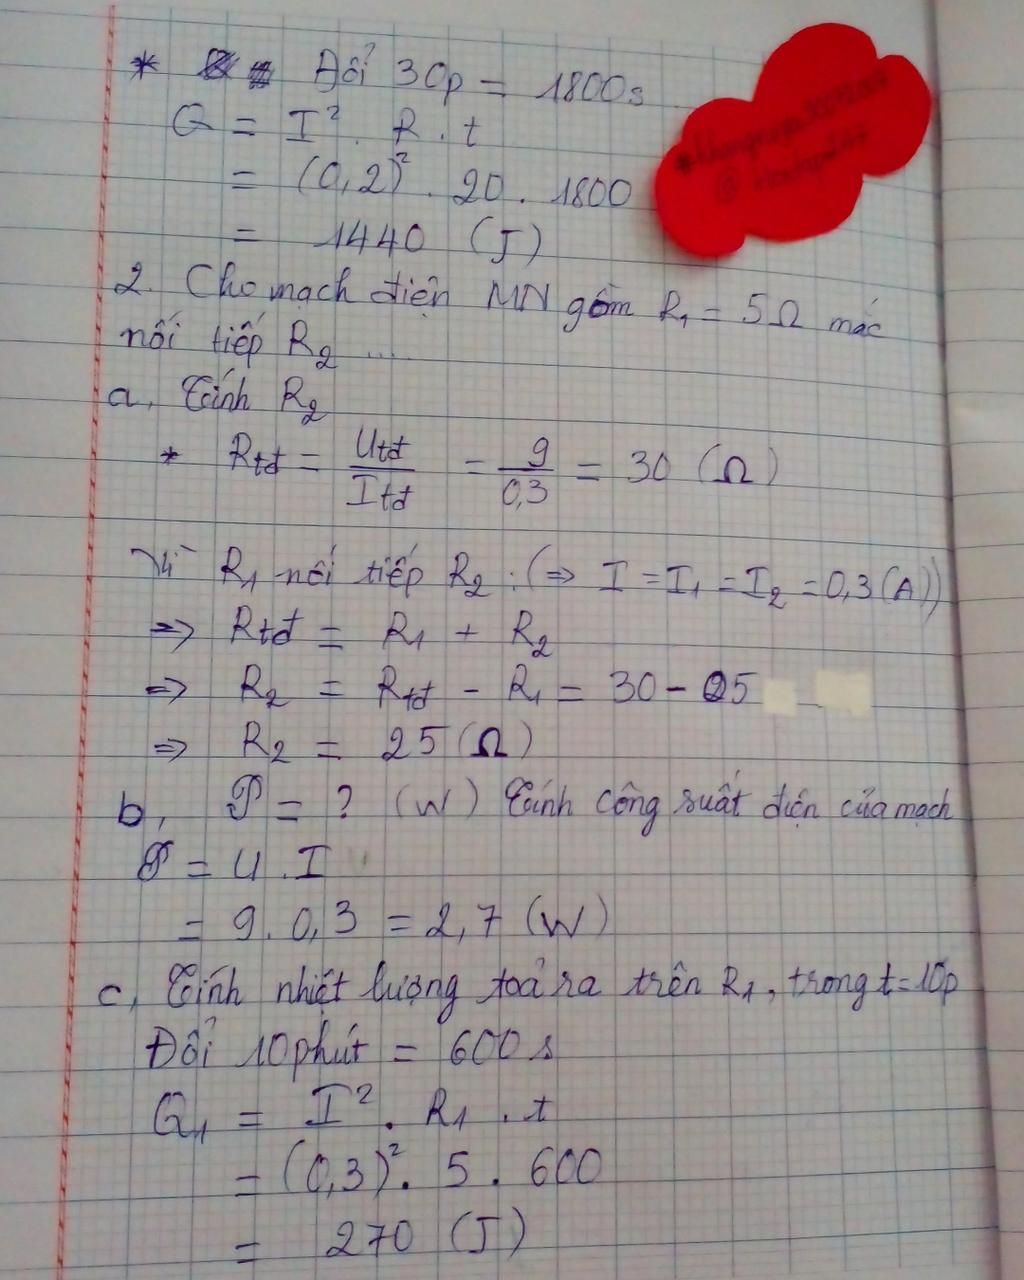 * Đổi 30p = 1800s
Q = I². R. t
= (0,2)². 20. 1800
= 1440 (J)
2. Cho mạch điện MN gồm R₁ = 5Ω mắc
nối tiếp R₂ ....
a, Tính R₂
* Rtđ = Utđ/Itđ = 9/0,3 = 30 (Ω)
Vì R₁ nối tiếp R₂ : (⇒ I = I₁ = I₂ = 0,3 (A))
⇒ Rtđ = R₁ + R₂
⇒ R₂ = Rtđ - R₁ = 30 - 5
⇒ R₂ = 25 (Ω)
b, P = ? (W) Tính công suất điện của mạch
P = U.I
= 9. 0,3 = 2,7 (W)
c, Tính nhiệt lượng toả ra trên R₁, trong t = 10p
Đổi 10phút = 600s
Q₁ = I². R₁. t
= (0,3)². 5. 600
= 270 (J)